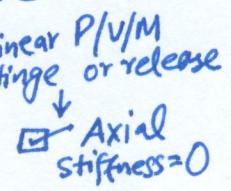 inear P/V/M
inge or release
Axial
stiffness=0